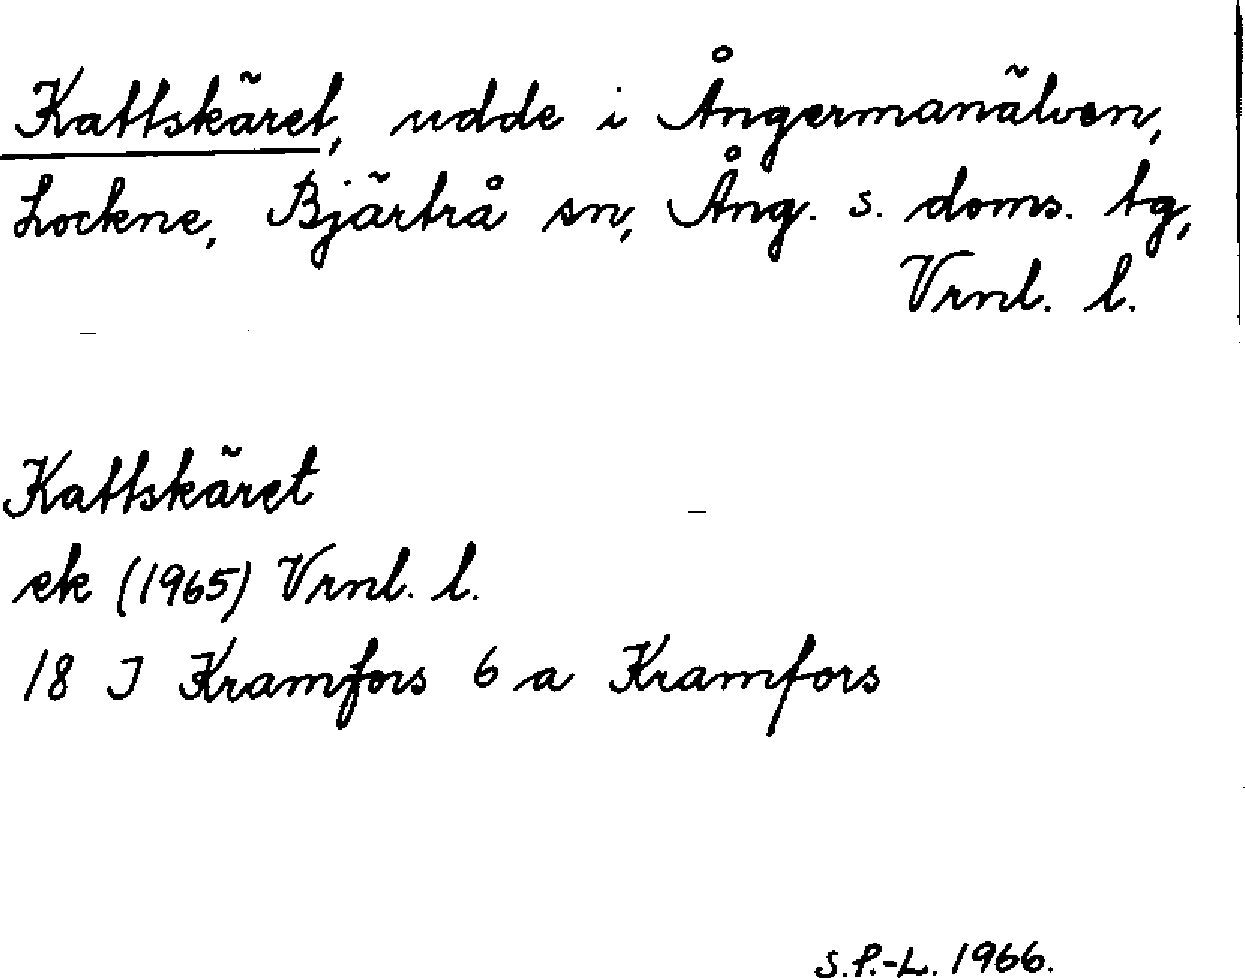 Kattskäret, udde i Ångermanälven,
Lockne, Bjärtrå sn, Ång. s. doms. tg,
Vrnl. l.
Kattskäret
ek (1965) Vrnl. l.
18 J Kramfors 6 a Kramfors
S.P.-L. 1966.